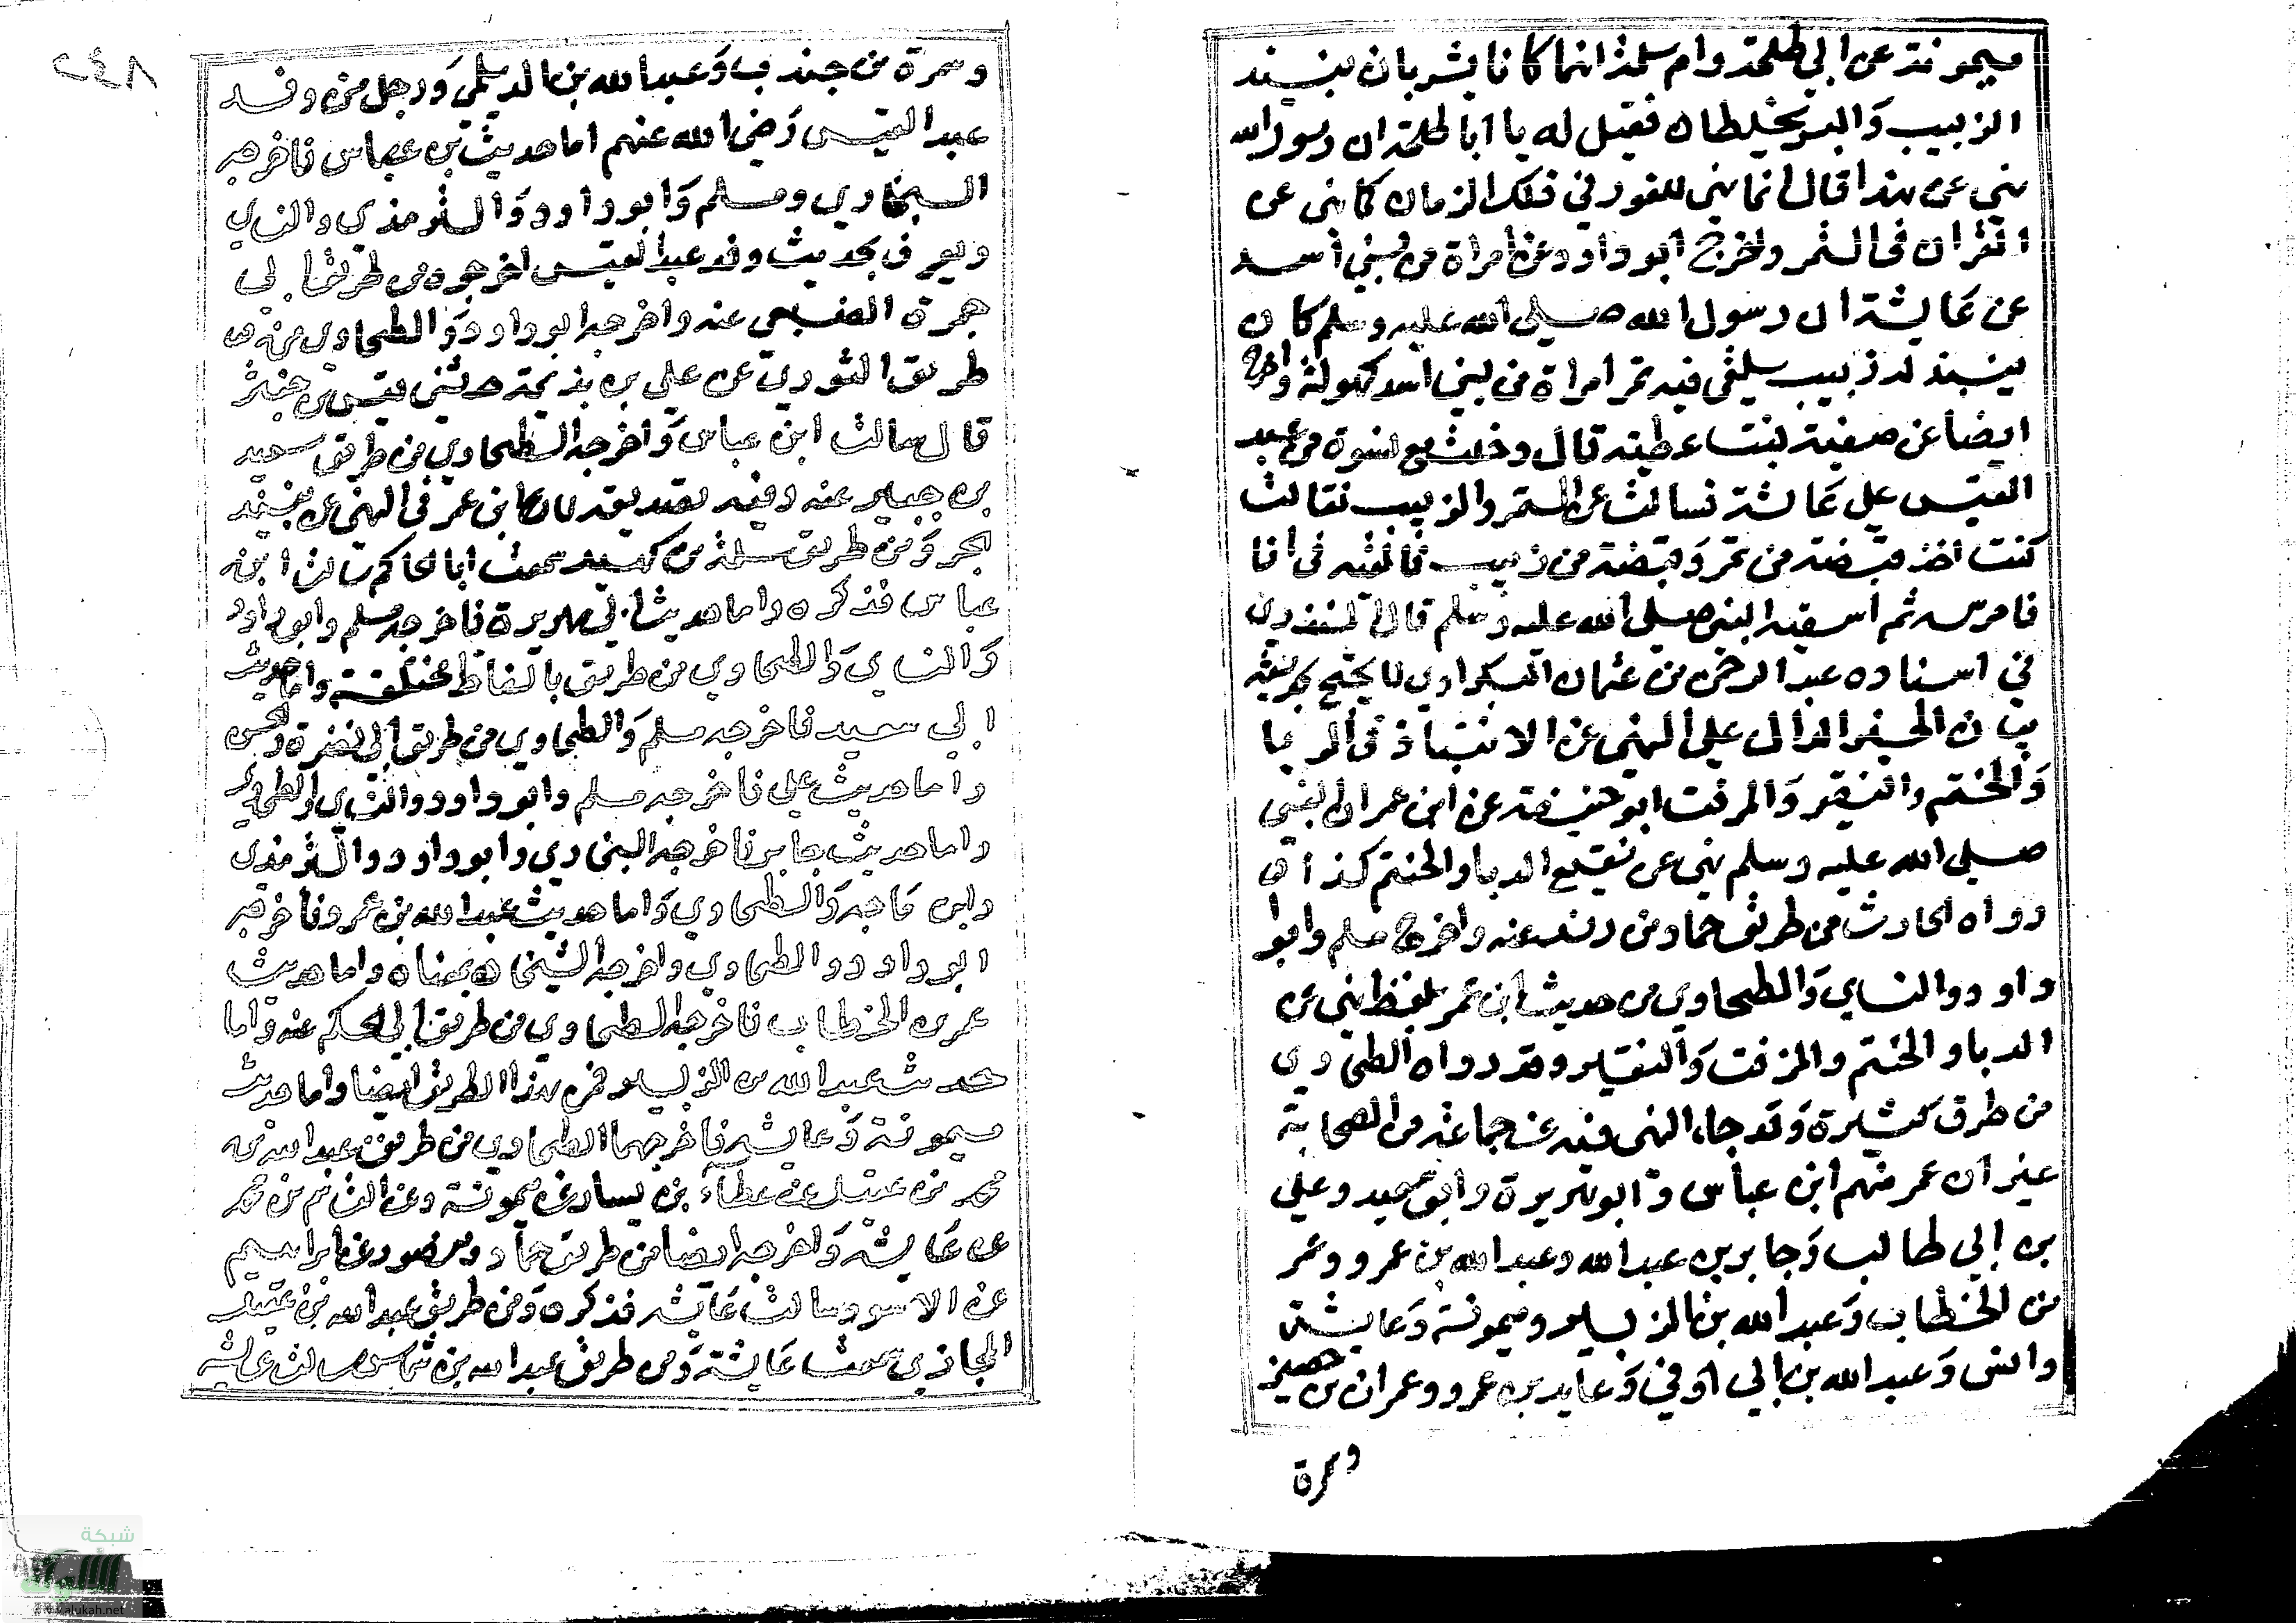 ميمونة عن ابي طلحة وام سلمة انهما كانا يشربان نبيذ
الزبيب والبسر يخلطان فقيل له يا ابا طلحة ان رسول الله
نهى عن هذا قال انما نهى للعوز في ذلك الزمان كما نهى عن
الاقران في التمر واخرج ابو داود عن امراة من بني اسد
عن عايشة ان رسول الله صلى الله عليه وسلم كان
ينبذ له زبيب يلقى فيه تمر امراة من بني اسد مجهولة واخرج
ايضا عن صفية بنت عطية قال دخلت مع نسوة من عبد
القيس على عايشة نسالت عن التمر والزبيب فقالت
كنت اخذ قبضة من تمر وقبضة من زبيب فالقيه في انا
فامرسه ثم اسقيه النبي صلى الله عليه وسلم قال المنذري
في اسناده عبد الرحمن بن عثمان البكراوي لا يحتج بحديثه
بيان الخبر الدال على النهي عن الانتباذ في الدبا
والحنتم والنقير والمزفت ابو حنيفة عن ابن عمر ان النبي
صلى الله عليه وسلم نهى عن نقيع الدبا والحنتم كذا
رواه الحارث من طريق حماد بن عنه واخرج مسلم وابو
داود والنساي والطحاوي من حديث ابن عمر بلفظ نهى عن
الدبا والحنتم والمزفت والنقير وقد رواه الطحاوي
من طرق كثيرة وقد جاء النهي فيه عن جماعة من الصحابة
غير ابن عمر منهم ابن عباس وابو هريرة وابو سعيد وعلي
بن ابي طالب وجابر بن عبد الله وعبد الله بن عمرو وعمر
بن الخطاب وعبد الله بن الزبير وميمونة وعايشة
وانس وعبد الله بن ابي اوفي وعايد بن عمرو وعمران بن حصين
وسمرة
وسمرة بن جندب وعبد الله بن الديلمي ورجل من وفد
عبد القيس رضي الله عنهم اما حديث بن عباس فاخرجه
البخاري ومسلم وابو داود والترمذي والنساي
ويعرف بحديث وفد عبد القيس اخرجوه من طريق ابي
جمرة الضبعي عنه واخرجه ابو داود والطحاوي من
طريق الثوري عن علي بن بذيمة حدثني قيس بن حبتر
قال سالت ابن عباس واخرجه الطحاوي من طريق سعيد
بن جبير عنه وفيه تصديقه لابن عمر في النهي عن نبيذ
الجر ومن طريق سلمة بن كهيل سمعت ابا الحاكم سالت ابن
عباس فذكره واما حديث ابي هريرة فاخرجه مسلم وابو داود
والنساي والطحاوي من طريق بالفاظ مختلفة واما حديث
ابي سعيد فاخرجه مسلم والطحاوي من طريق ابي نضرة والحسن
واما حديث علي فاخرجه مسلم وابو داود والنساي والطحاوي
واما حديث جابر فاخرجه البخاري وابو داود والترمذي
وابن ماجه والطحاوي واما حديث عبد الله بن عمرو فاخرجه
ابو داود والطحاوي واخرجه الشيخان بمعناه واما حديث
عمر بن الخطاب فاخرجه الطحاوي من طريق ابي الحكم عنه واما
حديث عبد الله بن الزبير فمن هذا الطريق ايضا واما حديث
ميمونة وعايشه فاخرجهما الطحاوي من طريق عبد الله بن
محمد بن عقيل عن عطاء بن يسار عن ميمونة وعن القاسم بن محمد
عن عايشه واخرجه ايضا من طريق حماد ومنصور عن ابراهيم
عن الاسود سالت عايشه فذكره ومن طريق عبد الله بن عقيل
سمعت عايشة ومن طريق عبد الله بن شماس سالت عايشه
شبكة
الألوكة
www.alukah.net